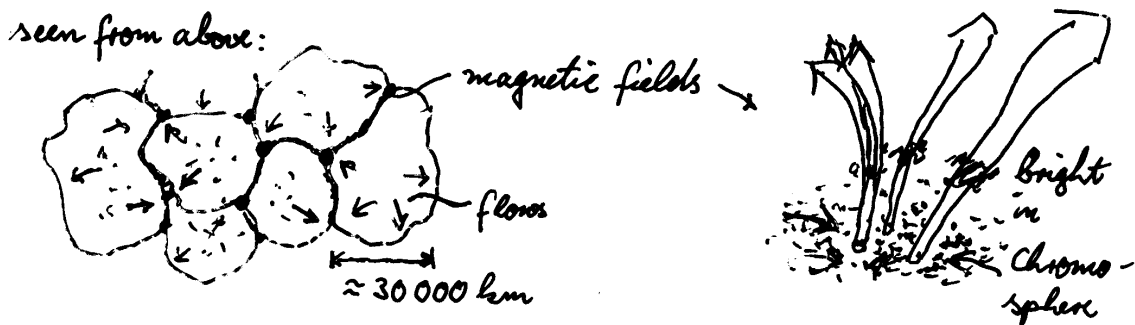 seen from above:
magnetic fields
flows
≈ 30 000 km
Bright
in
Chromo-
sphere